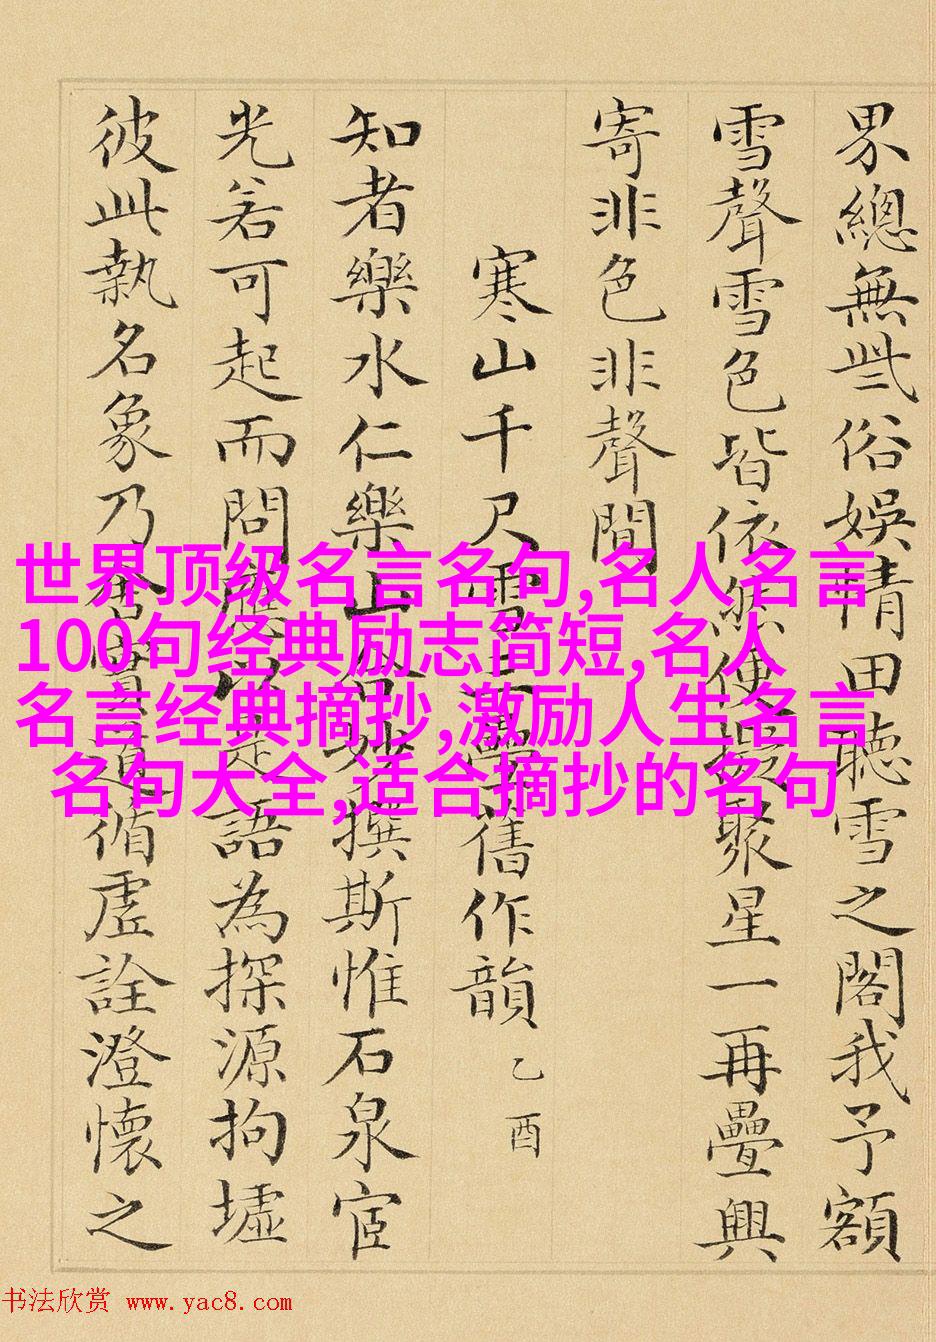 界總無些俗娱情田聽雪之閣我予額
雪聲雪色皆依然便擬聚星一再疊興
寄非色非聲間
寒山千尺雪疊舊作韻 乙酉
知者樂水仁樂山妙撰斯惟石泉宦
光若可起而問應以是語為探源拘墟
彼此執名象乃循虛詮澄懷之
世界顶级名言名句,名人名言
100句经典励志简短,名人
名言经典摘抄,激励人生名言
名句大全,适合摘抄的名句
书法欣赏 www.yac8.com